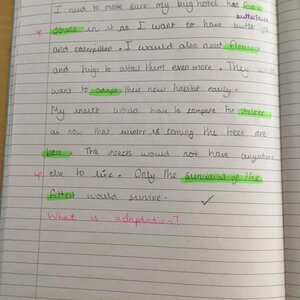 I need to make sure my bug hotel has
butterflies
in it as I want to have
and caterpillars. I would also need flowers
and twigs to attract them even more. They
want to adapt their new habitat easily.
My insect would have to compete for shelter
as now that winter is coming the trees are
bare. The insects would not have anywhere
else to live. Only the survival of the
fittest would survive.
What is adaptation?